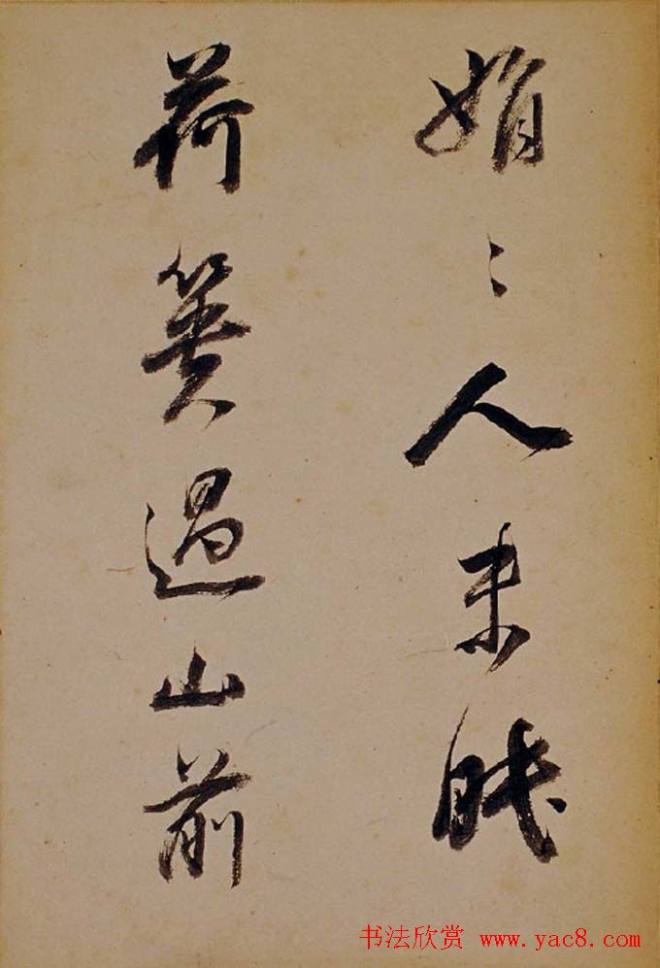 娟〻人未眠
荷簣過山前
书法欣赏 www.yac8.com